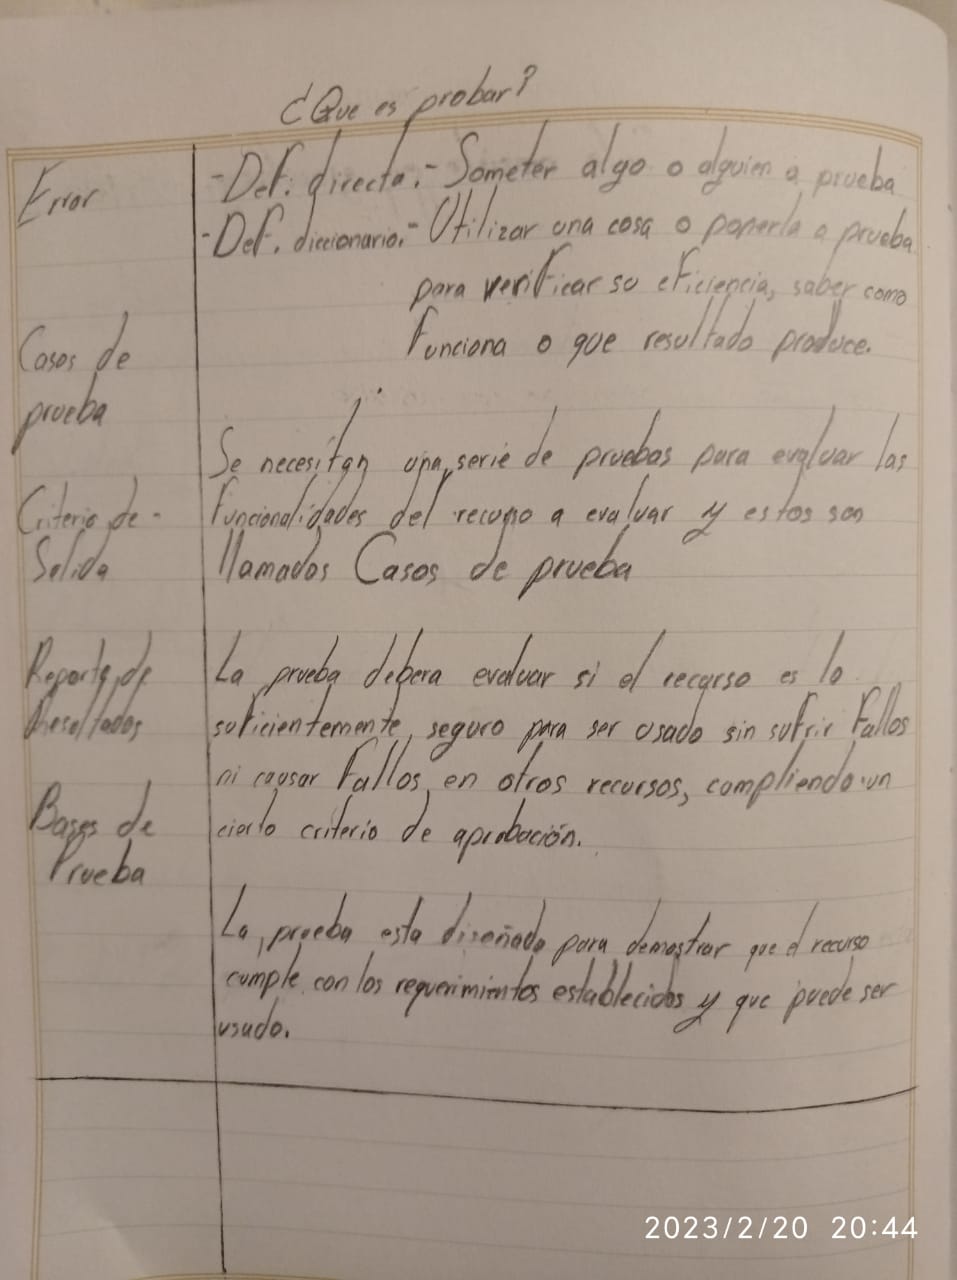 ¿Que es probar?
Error
Casos de
prueba
Criterio de -
Salida
Reporte de
Resultados
Bases de
Prueba
-Def. directa.- Someter algo o alguien a prueba
-Def. diccionario.- Utilizar una cosa o ponerla a prueba
para verificar su eficiencia, saber como
funciona o que resultado produce.
Se necesitan una serie de pruebas para evaluar las
funcionalidades del recurso a evaluar y estos son
llamados Casos de prueba
La prueba debera evaluar si el recurso es lo
suficientemente seguro para ser usado sin sufrir fallos
ni causar fallos en otros recursos, compliendo un
cierto criterio de aprobación.
La prueba esta diseñada para demostrar que el recurso
cumple con los requerimientos establecidos y que puede ser
usado.
2023/2/20 20:44